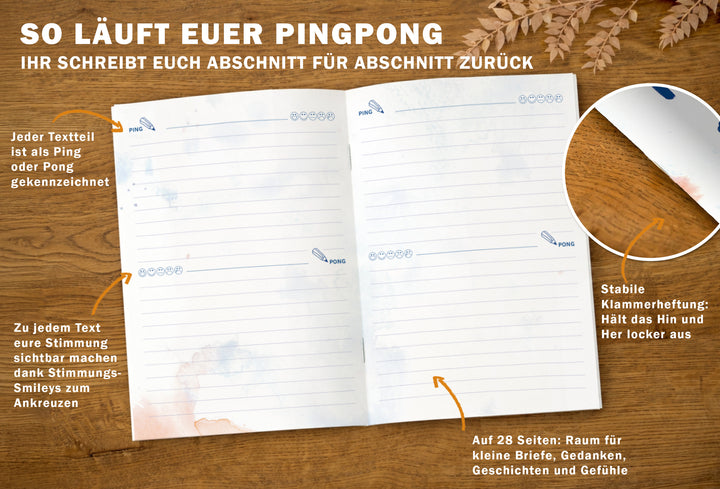 SO LÄUFT EUER PINGPONG
IHR SCHREIBT EUCH ABSCHNITT FÜR ABSCHNITT ZURÜCK
Jeder Textteil
ist als Ping
oder Pong
gekennzeichnet
PING
PING
PONG
PONG
Zu jedem Text
eure Stimmung
sichtbar machen
dank Stimmungs-
Smileys zum
Ankreuzen
Stabile
Klammerheftung:
Hält das Hin und
Her locker aus
Auf 28 Seiten: Raum für
kleine Briefe, Gedanken,
Geschichten und Gefühle